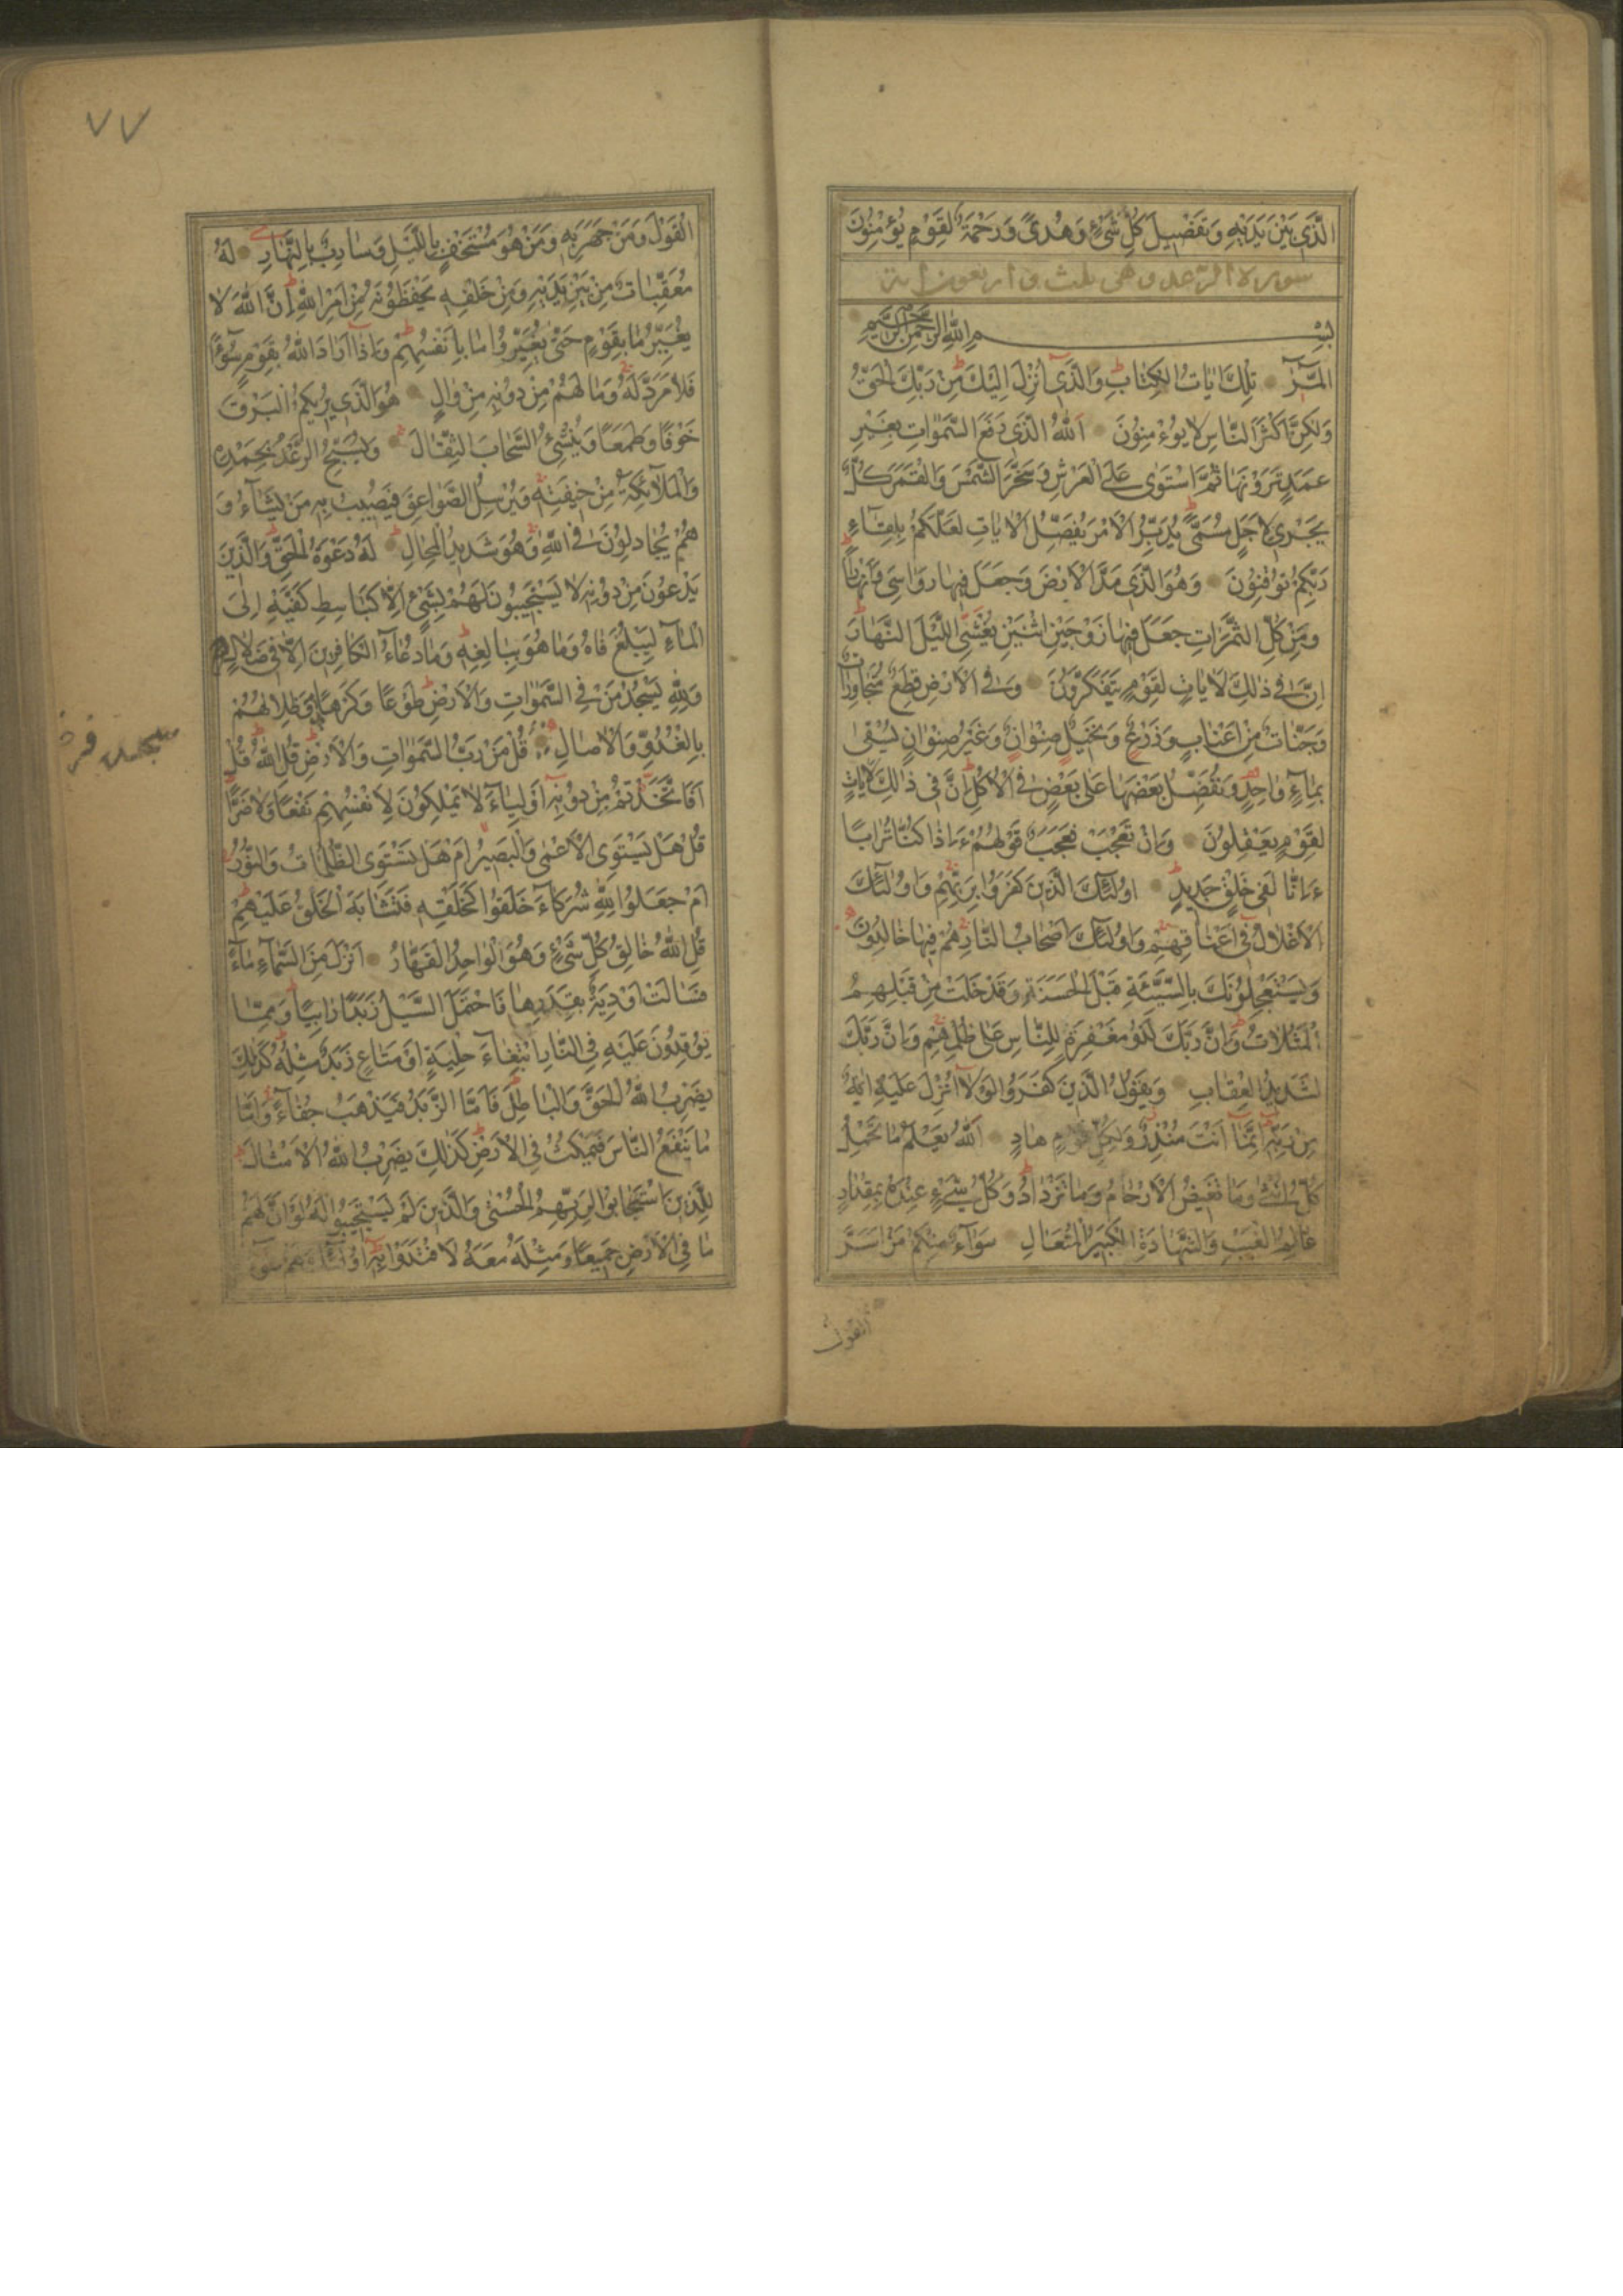 الَّذِي بَيْنَ يَدَيْهِ وَتَفْصِيلَ كُلِّ شَيْءٍ وَهُدًى وَرَحْمَةً لِقَوْمٍ يُؤْمِنُونَ
سورة الرعد وهى ثلث واربعون اية
بِسْمِ اللهِ الرَّحْمٰنِ الرَّحِيمِ
الٓمّٓرٰ تِلْكَ اٰيَاتُ الْكِتَابِ وَالَّذِي اُنْزِلَ اِلَيْكَ مِنْ رَبِّكَ الْحَقُّ
وَلٰكِنَّ اَكْثَرَ النَّاسِ لَا يُؤْمِنُونَ اَللهُ الَّذِي رَفَعَ السَّمٰوَاتِ بِغَيْرِ
عَمَدٍ تَرَوْنَهَا ثُمَّ اسْتَوٰى عَلَى الْعَرْشِ وَسَخَّرَ الشَّمْسَ وَالْقَمَرَ كُلٌّ
يَجْرِي لِاَجَلٍ مُسَمًّى يُدَبِّرُ الْاَمْرَ يُفَصِّلُ الْاٰيَاتِ لَعَلَّكُمْ بِلِقَاءِ
رَبِّكُمْ تُوقِنُونَ وَهُوَ الَّذِي مَدَّ الْاَرْضَ وَجَعَلَ فِيهَا رَوَاسِيَ وَاَنْهَارًا
وَمِنْ كُلِّ الثَّمَرَاتِ جَعَلَ فِيهَا زَوْجَيْنِ اثْنَيْنِ يُغْشِي اللَّيْلَ النَّهَارَ
اِنَّ فِي ذٰلِكَ لَاٰيَاتٍ لِقَوْمٍ يَتَفَكَّرُونَ وَفِي الْاَرْضِ قِطَعٌ مُتَجَاوِرَاتٌ
وَجَنَّاتٌ مِنْ اَعْنَابٍ وَزَرْعٍ وَنَخِيلٍ صِنْوَانٍ وَغَيْرِ صِنْوَانٍ تُسْقٰى
بِمَاءٍ وَاحِدٍ وَنُفَضِّلُ بَعْضَهَا عَلٰى بَعْضٍ فِي الْاُكُلِ اِنَّ فِي ذٰلِكَ لَاٰيَاتٍ
لِقَوْمٍ يَعْقِلُونَ وَاِنْ تَعْجَبْ فَعَجَبٌ قَوْلُهُمْ ءَاِذَا كُنَّا تُرَابًا
ءَاِنَّا لَفِي خَلْقٍ جَدِيدٍ اُولٰئِكَ الَّذِينَ كَفَرُوا بِرَبِّهِمْ وَاُولٰئِكَ
الْاَغْلَالُ فِي اَعْنَاقِهِمْ وَاُولٰئِكَ اَصْحَابُ النَّارِ هُمْ فِيهَا خَالِدُونَ
وَيَسْتَعْجِلُونَكَ بِالسَّيِّئَةِ قَبْلَ الْحَسَنَةِ وَقَدْ خَلَتْ مِنْ قَبْلِهِمُ
الْمَثُلَاتُ وَاِنَّ رَبَّكَ لَذُو مَغْفِرَةٍ لِلنَّاسِ عَلٰى ظُلْمِهِمْ وَاِنَّ رَبَّكَ
لَشَدِيدُ الْعِقَابِ وَيَقُولُ الَّذِينَ كَفَرُوا لَوْلَا اُنْزِلَ عَلَيْهِ اٰيَةٌ
مِنْ رَبِّهِ اِنَّمَا اَنْتَ مُنْذِرٌ وَلِكُلِّ قَوْمٍ هَادٍ اَللهُ يَعْلَمُ مَا تَحْمِلُ
كُلُّ اُنْثٰى وَمَا تَغِيضُ الْاَرْحَامُ وَمَا تَزْدَادُ وَكُلُّ شَيْءٍ عِنْدَهُ بِمِقْدَارٍ
عَالِمُ الْغَيْبِ وَالشَّهَادَةِ الْكَبِيرُ الْمُتَعَالِ سَوَاءٌ مِنْكُمْ مَنْ اَسَرَّ
القول
٧٧
الْقَوْلَ وَمَنْ جَهَرَ بِهِ وَمَنْ هُوَ مُسْتَخْفٍ بِاللَّيْلِ وَسَارِبٌ بِالنَّهَارِ لَهُ
مُعَقِّبَاتٌ مِنْ بَيْنِ يَدَيْهِ وَمِنْ خَلْفِهِ يَحْفَظُونَهُ مِنْ اَمْرِ اللهِ اِنَّ اللهَ لَا
يُغَيِّرُ مَا بِقَوْمٍ حَتّٰى يُغَيِّرُوا مَا بِاَنْفُسِهِمْ وَاِذَا اَرَادَ اللهُ بِقَوْمٍ سُوءًا
فَلَا مَرَدَّ لَهُ وَمَا لَهُمْ مِنْ دُونِهِ مِنْ وَالٍ هُوَ الَّذِي يُرِيكُمُ الْبَرْقَ
خَوْفًا وَطَمَعًا وَيُنْشِئُ السَّحَابَ الثِّقَالَ وَيُسَبِّحُ الرَّعْدُ بِحَمْدِهِ
وَالْمَلٰٓائِكَةُ مِنْ خِيفَتِهِ وَيُرْسِلُ الصَّوَاعِقَ فَيُصِيبُ بِهِ مَنْ يَشَاءُ وَ
هُمْ يُجَادِلُونَ فِي اللهِ وَهُوَ شَدِيدُ الْمِحَالِ لَهُ دَعْوَةُ الْحَقِّ وَالَّذِينَ
يَدْعُونَ مِنْ دُونِهِ لَا يَسْتَجِيبُونَ لَهُمْ بِشَيْءٍ اِلَّا كَبَاسِطِ كَفَّيْهِ اِلَى
الْمَاءِ لِيَبْلُغَ فَاهُ وَمَا هُوَ بِبَالِغِهِ وَمَا دُعَاءُ الْكَافِرِينَ اِلَّا فِي ضَلَالٍ
وَلِلّٰهِ يَسْجُدُ مَنْ فِي السَّمٰوَاتِ وَالْاَرْضِ طَوْعًا وَكَرْهًا وَظِلَالُهُمْ
بِالْغُدُوِّ وَالْاٰصَالِ قُلْ مَنْ رَبُّ السَّمٰوَاتِ وَالْاَرْضِ قُلِ اللهُ قُلْ
اَفَاتَّخَذْتُمْ مِنْ دُونِهِ اَوْلِيَاءَ لَا يَمْلِكُونَ لِاَنْفُسِهِمْ نَفْعًا وَلَا ضَرًّا
قُلْ هَلْ يَسْتَوِي الْاَعْمٰى وَالْبَصِيرُ اَمْ هَلْ تَسْتَوِي الظُّلُمَاتُ وَالنُّورُ
اَمْ جَعَلُوا لِلّٰهِ شُرَكَاءَ خَلَقُوا كَخَلْقِهِ فَتَشَابَهَ الْخَلْقُ عَلَيْهِمْ
قُلِ اللهُ خَالِقُ كُلِّ شَيْءٍ وَهُوَ الْوَاحِدُ الْقَهَّارُ اَنْزَلَ مِنَ السَّمَاءِ مَاءً
فَسَالَتْ اَوْدِيَةٌ بِقَدَرِهَا فَاحْتَمَلَ السَّيْلُ زَبَدًا رَابِيًا وَمِمَّا
تُوقِدُونَ عَلَيْهِ فِي النَّارِ ابْتِغَاءَ حِلْيَةٍ اَوْ مَتَاعٍ زَبَدٌ مِثْلُهُ كَذٰلِكَ
يَضْرِبُ اللهُ الْحَقَّ وَالْبَاطِلَ فَاَمَّا الزَّبَدُ فَيَذْهَبُ جُفَاءً وَاَمَّا
مَا يَنْفَعُ النَّاسَ فَيَمْكُثُ فِي الْاَرْضِ كَذٰلِكَ يَضْرِبُ اللهُ الْاَمْثَالَ
لِلَّذِينَ اسْتَجَابُوا لِرَبِّهِمُ الْحُسْنٰى وَالَّذِينَ لَمْ يَسْتَجِيبُوا لَهُ لَوْ اَنَّ لَهُمْ
مَا فِي الْاَرْضِ جَمِيعًا وَمِثْلَهُ مَعَهُ لَافْتَدَوْا بِهِ اُولٰئِكَ لَهُمْ سُوءُ